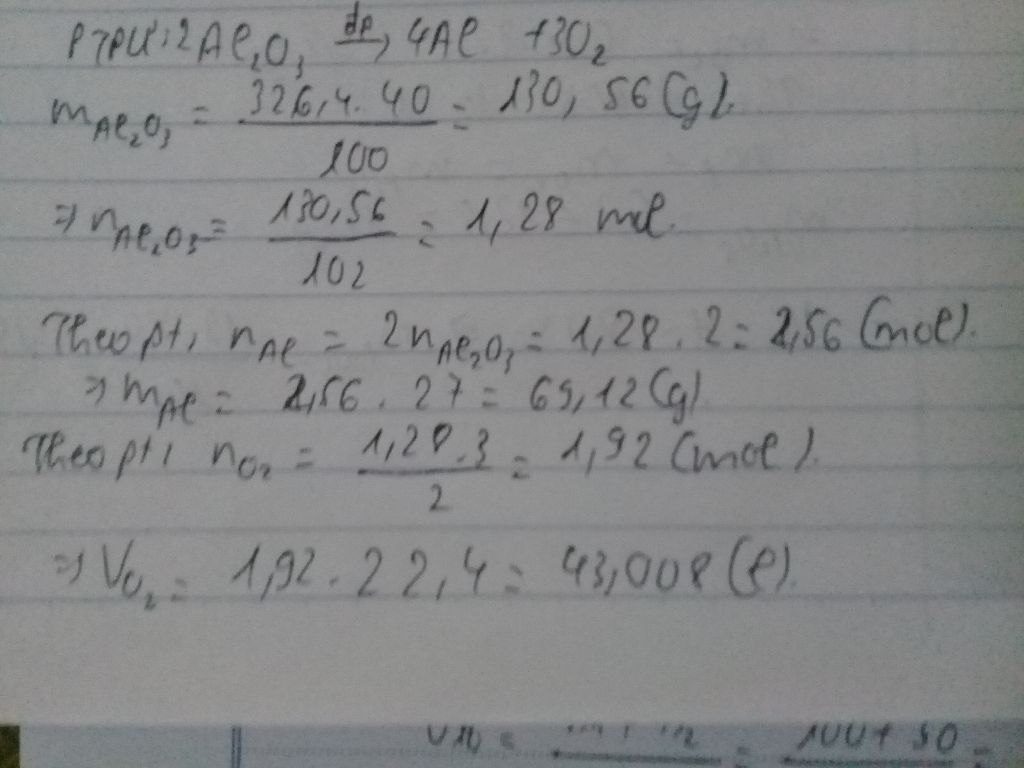 PTPƯ: 2Al₂O₃ đp→ 4Al + 3O₂
mAl₂O₃ = 326,4. 40 / 100 = 130, 56 (g).
⇒ nAl₂O₃ = 130,56 / 102 = 1, 28 mol.
Theo pt, nAl = 2nAl₂O₃ = 1,28 . 2 = 2,56 (mol).
⇒ mAl = 2,56 . 27 = 69,12 (g)
Theo pt, nO₂ = 1,28 . 3 / 2 = 1,92 (mol).
⇒ VO₂ = 1,92 . 22,4 = 43,008 (l).